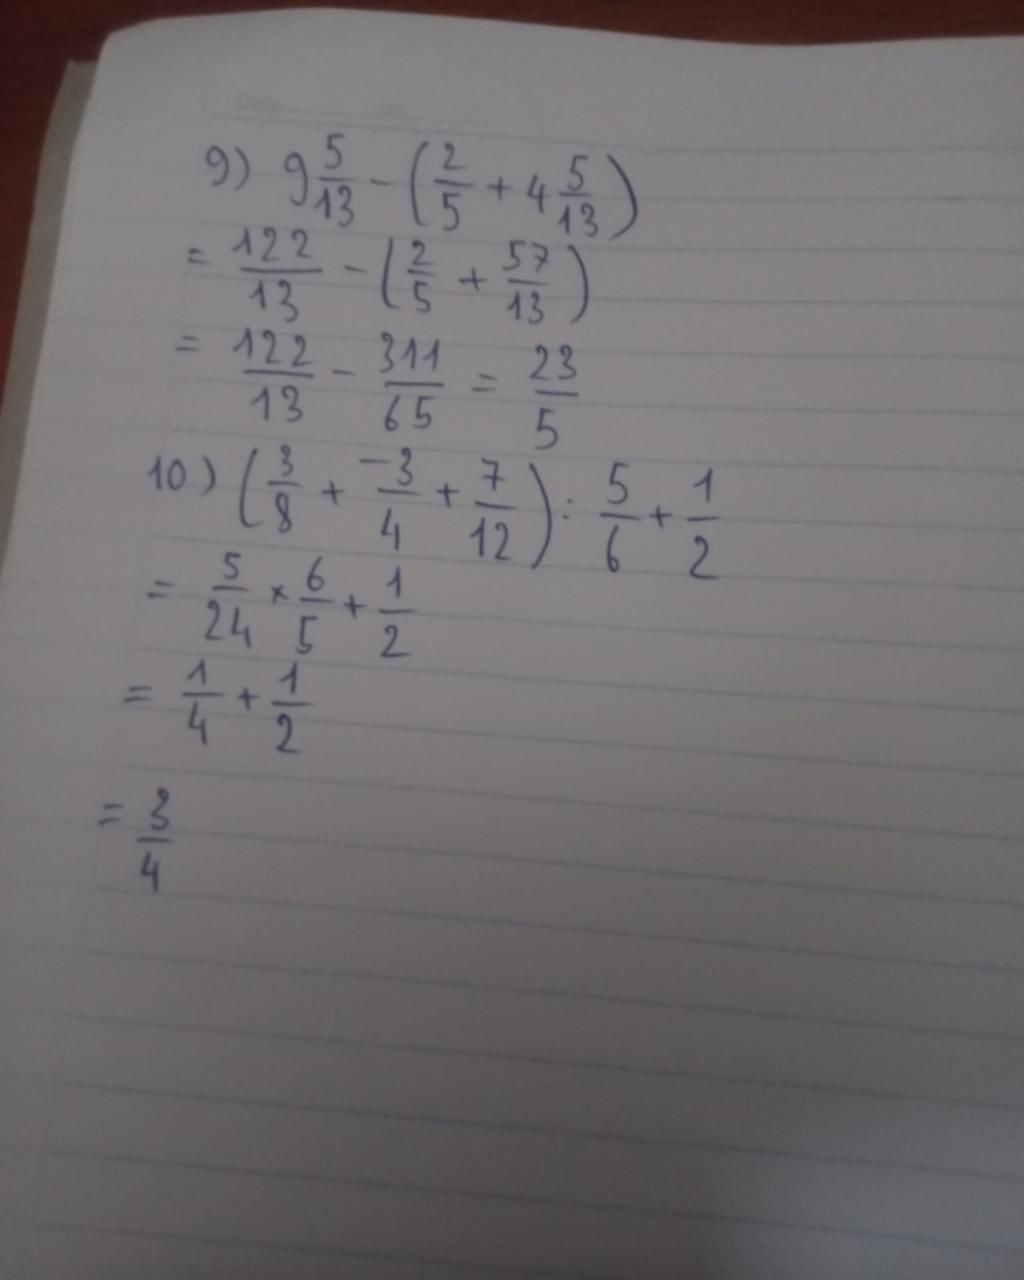 9) 9 5/13 - (2/5 + 4 5/13)
= 122/13 - (2/5 + 57/13)
= 122/13 - 311/65 = 23/5
10) (3/8 + -3/4 + 7/12) : 5/6 + 1/2
= 5/24 × 6/5 + 1/2
= 1/4 + 1/2
= 3/4